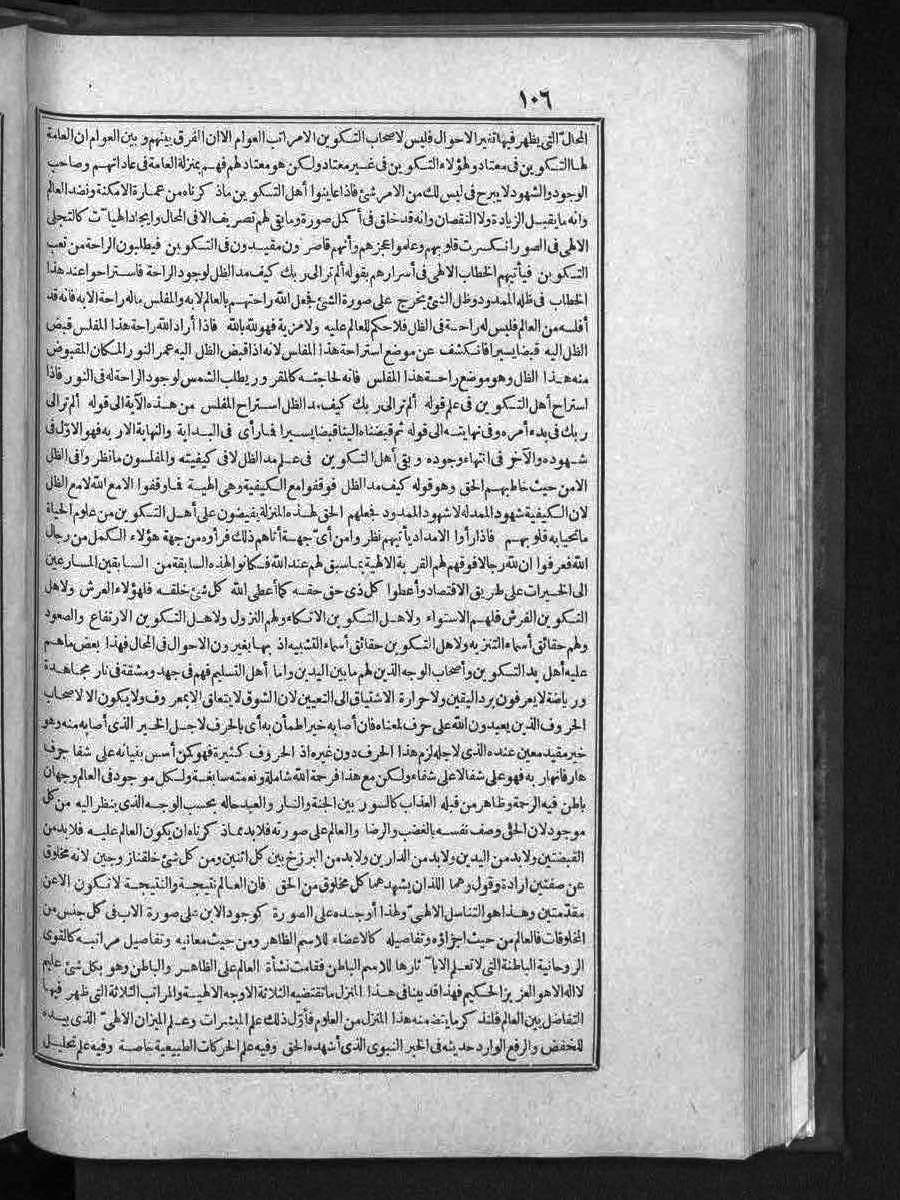 ١٠٦
المحال التي يظهر فيها تغير الاحوال فليس لاصحاب التكوين الامراتب العوام الاان الفرق بينهم وبين العوام ان العامة
لها التكوين فى معتاد ولهؤلاء التكوين فى غير معتاد ولكن هو معتاد لهم فهم بمنزلة العامة فى عاداتهم وصاحب
الوجود والشهود لا يبرح فى ليس لك من الامر شئ فاذا عاينوا أهل التكوين ماذكرناه من عمارة الامكنة ونضد العالم
وانه ما يقبل الزيادة ولا النقصان وانه قد خلق فى أكمل صورة وما بقى لهم تصريف الا فى المحال وايجاد الهيآت كالتجلى
الالهى فى الصور انكسرت قلوبهم وعلموا عجزهم وأنهم قاصرون مقيدون فى التكوين فيطلبون الراحة من تعب
التكوين فيأتيهم الخطاب الالهى فى أسرارهم بقوله ألم تر الى ربك كيف مد الظل لوجود الراحة فاستراحوا عند هذا
الخطاب فى ظله الممدود وظل الشئ يخرج على صورة الشئ فجعل الله راحتهم بالعالم لا به والمفلس ماله راحة الا به فانه قد
أفلسه من العالم فليس له راحة فى الظل فلا حكم للعالم عليه ولا مزية فهو لله بالله فاذا أراد الله راحة هذا المفلس قبض
الظل اليه قبضا يسيرا فانكشف عن موضع استراحة هذا المفلس لانه اذا قبض الظل اليه عمر النور المكان المقبوض
منه هذا الظل وهو موضع راحة هذا المفلس فانه لحاجته كالمقرور يطلب الشمس لوجود الراحة له فى النور فاذا
استراح أهل التكوين فى علم قوله ألم تر الى ربك كيف مد الظل استراح المفلس من هذه الآية الى قوله ألم تر الى
ربك فى بدء أمره وفى نهايته الى قوله ثم قبضناه الينا قبضا يسيرا فما رأى فى البداية والنهاية الا ربه فهو الاوّل فى
شهوده والآخر فى انتهاء وجوده وبقى أهل التكوين فى علم مد الظل لا فى كيفيته والمفلسون ما نظروا فى الظل
الامن حيث خاطبهم الحق وهو قوله كيف مد الظل فوقفوا مع الكيفية وهى الهية فما وقفوا الا مع الله لا مع الظل
لان الكيفية شهود الممدله لا شهود الممدود فجعلهم الحق لهذه المنزلة يفيضون على أهل التكوين من علوم الحياة
ما تحيا به قلوبهم فاذا رأوا الامداد يأتيهم نظروا من أىّ جهة أتاهم ذلك فرأوه من جهة هؤلاء الكمل من رجال
الله فعرفوا ان لله رجالا فوقهم لهم القربة الالهية بما سبق لهم عند الله فكانوا لهذه السابقة من السابقين المسارعين
الى الخيرات على طريق الاقتصاد وأعطوا كل ذى حق حقه كما أعطى الله كل شئ خلقه فلهؤلاء العرش ولاهل
التكوين الفرش فلهم الاستواء ولاهل التكوين الاتكاء ولهم النزول ولاهل التكوين الارتفاع والصعود
ولهم حقائق أسماء التنزيه ولاهل التكوين حقائق أسماء التشبيه اذ بها يغيرون الاحوال فى المحال فهذا بعض ماهم
عليه أهل يد التكوين وأصحاب الوجه الذين لهم ما بين اليدين واما أهل التسليم فهم فى جهد ومشقة فى نار مجاهدة
ورياضة لا يعرفون برد اليقين ولا حرارة الاشتياق الى التعيين لان الشوق لا يتعلق الا بمعروف ولا يكون الا لاصحاب
الحروف الذين يعبدون الله على حرف لمعناه فان أصابه خير اطمأن به أى بالحرف لاجل الخير الذى أصابه منه وهو
خير مقيد معين عنده الذى لاجله لزم هذا الحرف دون غيره اذ الحروف كثيرة فهو كمن أسس بنيانه على شفا جرف
هار فانهار به فهو على شفا لا على شفاء ولكن مع هذا فرحمة الله شاملة ونعمته سابغة ولكل موجود فى العالم وجهان
باطن فيه الرحمة وظاهر من قبله العذاب كالسور بين الجنة والنار والعبد حاله بحسب الوجه الذى ينظر اليه من كل
موجود لان الحق وصف نفسه بالغضب والرضا والعالم على صورته فلا بد مماذكرناه ان يكون العالم عليه فلا بد من
القبضتين ولا بد من اليدين ولا بد من الدارين ولا بد من البرزخ بين كل اثنين ومن كل شئ خلقنا زوجين لانه مخلوق
عن صفتين ارادة وقول وهما اللذان يشهدهما كل مخلوق من الحق فان العالم نتيجة والنتيجة لا تكون الاعن
مقدّمتين وهذا هو التناسل الالهىّ ولهذا أوجده على الصورة كوجود الابن على صورة الاب فى كل جنس من
المخلوقات فالعالم من حيث اجزاؤه وتفاصيله كالاعضاء للاسم الظاهر ومن حيث معانيه وتفاصيل مراتبه كالقوى
الروحانية الباطنة التى لا تعلم الا بآثارها للاسم الباطن فقامت نشأة العالم على الظاهر والباطن وهو بكل شئ عليم
لا اله الا هو العزيز الحكيم فهذا قد بينا فى هذا المنزل ما تقتضيه الثلاثة الاوجه الالهية والمراتب الثلاثة التى ظهر فيها
التفاضل بين العالم فلنذكر ما يتضمنه هذا المنزل من العلوم فأوّل ذلك علم المبشرات وعلم الميزان الالهىّ الذى بيده
للخفض والرفع الوارد حديثه فى الخبر النبوى الذى أشهده الحق وفيه علم الحركات الطبيعية خاصة وفيه علم تحليل